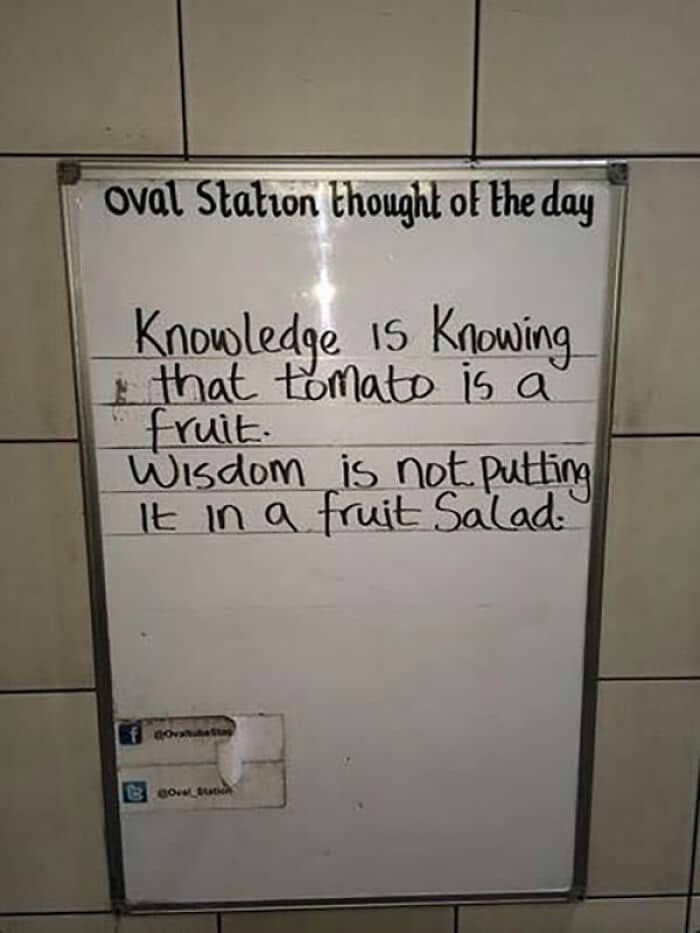 Oval Station thought of the day
Knowledge is Knowing
that tomato is a
fruit.
Wisdom is not putting
It in a fruit Salad.
@Oval_Station